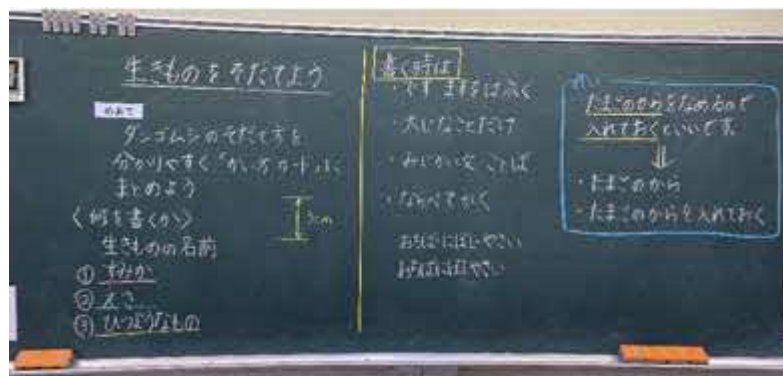 生きものをそだてよう
めあて
ダンゴムシのそだて方を
分かりやすく「かい方カード」に
まとめよう
〈何を書くか〉
生きものの名前
① すみか
② えさ
③ ひつようなもの
3cm
書く時は
・です ますをはぶく
・大じなことだけ
・みじかい文 ことば
・ならべてかく
おちばにぼしやさい
たまごのからをなめるので
入れておくといいです。
・たまごのから
・たまごのからを入れておく